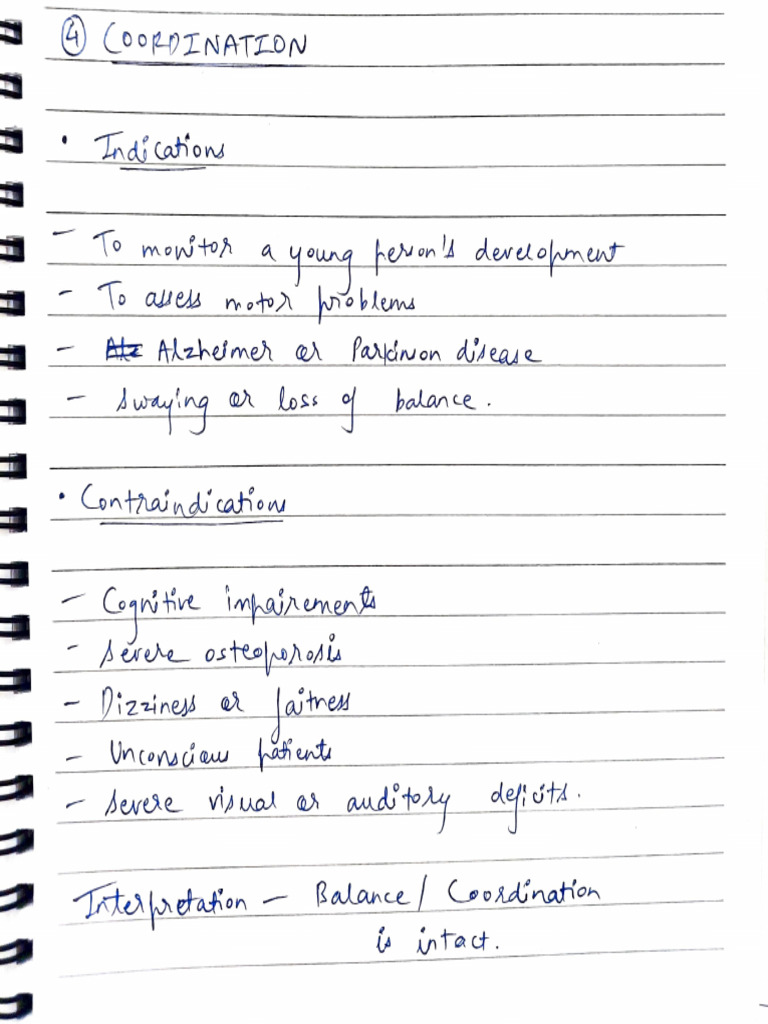 ④ COORDINATION
• Indications
- To monitor a young person's development
- To assess motor problems
- Alzheimer or Parkinson disease
- Swaying or loss of balance.
• Contraindications
- Cognitive impairements
- Severe osteoporosis
- Dizziness or faitness
- Unconscious patients
- Severe visual or auditory deficits.
Interpretation - Balance/ Coordination
is intact.